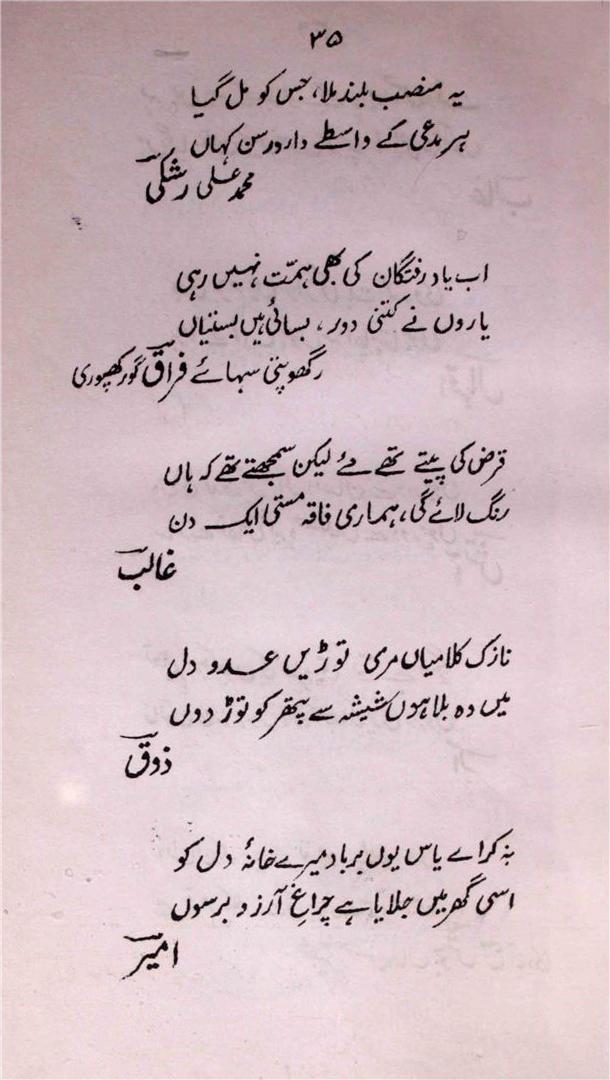 ۳۵
یہ منصب بلند ملا، جس کو مل گیا
ہر مدعی کے واسطے دار و رسن کہاں
محمد علی رشکی
اب یاد رفتگان کی بھی ہمّت نہیں رہی
یاروں نے کتنی دور، بسائی ہیں بستیاں
رگھوپتی سہائے فراق گورکھپوری
قرض کی پیتے تھے مے لیکن سمجھتے تھے کہ ہاں
رنگ لائے گی، ہماری فاقہ مستی ایک دن
غالب
نازک کلامیاں مری توڑیں عدو دل
میں وہ بلا ہوں شیشہ سے پتھر کو توڑ دوں
ذوق
نہ کر اے یاس یوں برباد میرے خانۂ دل کو
اسی گھر میں جلایا ہے چراغِ آرزو برسوں
امیر